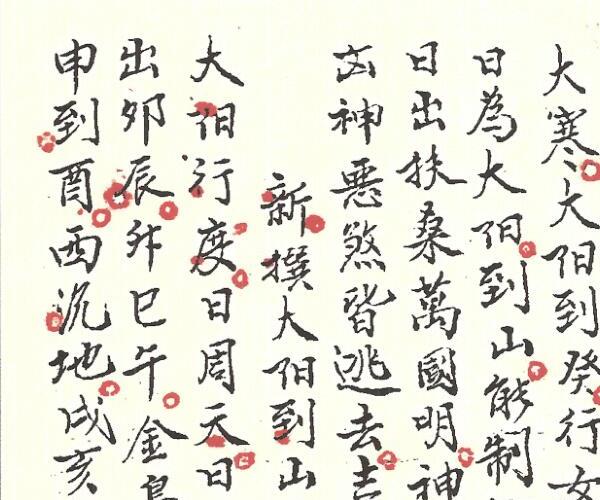 大寒大阳到癸行女
日為大阳到山能制
日出扶桑萬國明神
凶神惡煞皆逃去吉
新撰大阳到山
大阳行度日周天日
出卯辰升巳午金烏
申到酉西沉地戌亥